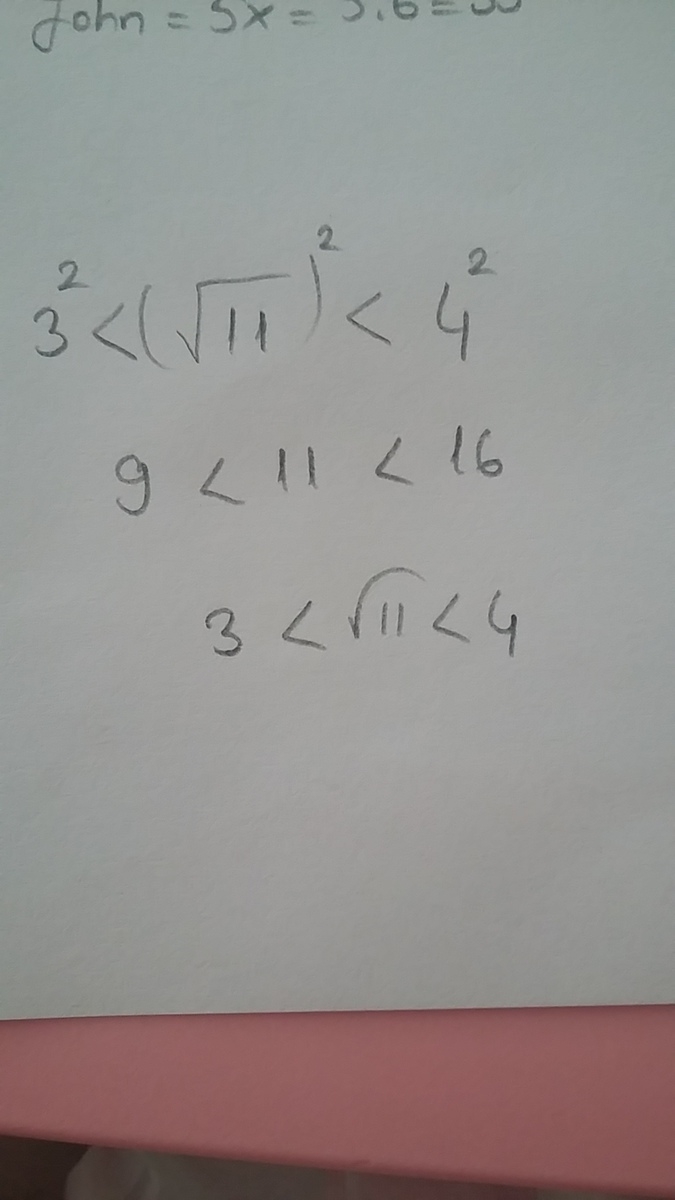 John = 5x = 5.6=
3² < (√11)² < 4²
9 < 11 < 16
3 < √11 < 4